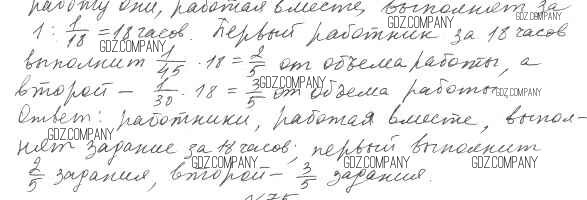 работу они, работая вместе, выполняет за
1 : 1/18 = 18 часов. Первый работник за 18 часов
выполнит 1/45 · 18 = 2/5 от объема работы, а
второй – 1/30 · 18 = 3/5 от объема работы.
Ответ: работники, работая вместе, выпол-
нят задание за 18 часов; первый выполнит
2/5 задания, второй – 3/5 задания.
№75
GDZ.COMPANY
GDZ.COMPANY
GDZ.COMPANY
GDZ.COMPANY
GDZ.COMPANY
GDZ.COMPANY
GDZ.COMPANY
GDZ.COMPANY
GDZ.COMPANY